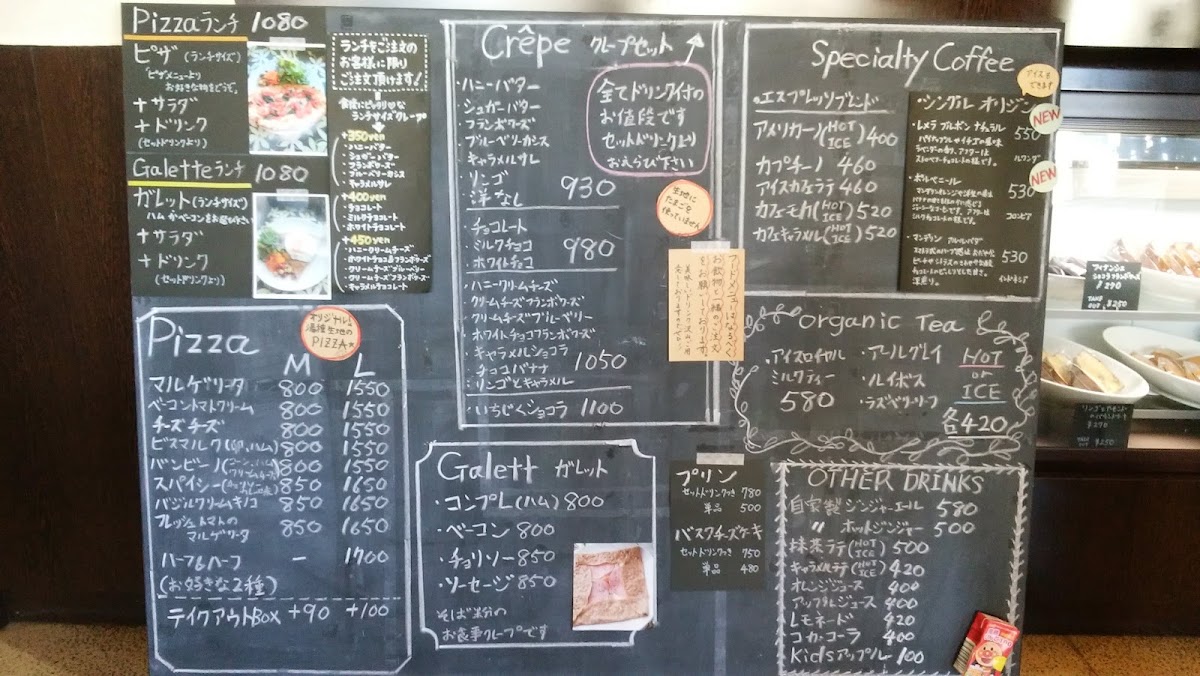 Pizzaランチ 1080
ピザ (ランチサイズ)
ピザメニューより
お好きな物をどうぞ。
+サラダ
+ドリンク
(セットドリンクより)
Galetteランチ 1080
ガレット (ランチサイズ)
ハム かベーコンをお選び下さい
+サラダ
+ドリンク
(セットドリンクより)
ランチをご注文の
お客様に限り
ご注文頂けます!
食後にピッタリ♡な
ランチサイズクレープ
+350yen
・ハニーバター
・シュガーバター
・フランボワーズ
・ブルーベリーカシス
・キャラメルサレ
+400yen
・チョコレート
・ミルクチョコレート
・ホワイトチョコレート
+450yen
・ハニークリームチーズ
・ホワイトチョコ&フランボワーズ
・クリームチーズブルーベリー
・クリームチーズフランボワーズ
・キャラメルショコラ
Pizza
オリジナル
生地の
PIZZA★
M L
マルゲリータ 800 1550
ベーコントマトクリーム 800 1550
チーズチーズ 800 1550
ビスマルク(卵,ハム) 800 1550
バンビーノ(コーン,ハム クリームチーズ) 800 1550
スパイシー 850 1650
バジルクリームキノコ 850 1650
フレッシュトマトの
マルゲリータ 850 1650
ハーフ&ハーフ — 1700
(お好きな2種)
テイクアウトBOX +90 +100
Crêpe クレープセット
全てドリンク付の
お値段です
セットドリンクより
おえらび下さい
・ハニーバター
・シュガーバター
・フランボワーズ
・ブルーベリーカシス
・キャラメルサレ
・リンゴ
・洋なし 930
・チョコレート
・ミルクチョコ
・ホワイトチョコ 980
・ハニークリームチーズ
・クリームチーズフランボワーズ
・クリームチーズブルーベリー
・ホワイトチョコフランボワーズ
・キャラメルショコラ
・チョコバナナ
・リンゴとキャラメル 1050
・いちじくショコラ 1100
生地に
たまごを
使っていません
フードメニューはなるべく
お飲物と一緒のご注文
をお願いしております。
Galett ガレット
・コンプレ(ハム) 800
・ベーコン 800
・チョリソー 850
・ソーセージ 850
そば粉の
お食事クレープです
プリン
セットドリンクつき 780
単品 500
バスクチーズケーキ
セットドリンクつき 750
単品 480
Specialty Coffee
・エスプレッソブレンド
アメリカーノ(HOT ICE) 400
カプチーノ 460
アイスカフェラテ 460
カフェモカ(HOT ICE) 520
カフェキャラメル(HOT ICE) 520
アイスも
できます
・シングル オリジン
NEW
・レメラ ブルボン ナチュラル 550
ルワンダ
NEW
・ポルベニール 530
コロンビア
・マンデリン 530
インドネシア
organic Tea
・アイスロイヤル
ミルクティー
580
・アールグレイ
・ルイボス
・ラズベリーリーフ
HOT
or
ICE
各420
OTHER DRINKS
自家製 ジンジャーエール 580
〃 ホットジンジャー 500
抹茶ラテ(HOT ICE) 500
キャラメルラテ(HOT ICE) 420
オレンジジュース 400
アップルジュース 400
レモネード 420
コカ・コーラ 400
Kidsアップル 100
アイデンシュ
ショコラフランボワーズ
¥290
TAKE OUT ¥250
¥270
TAKE OUT ¥250